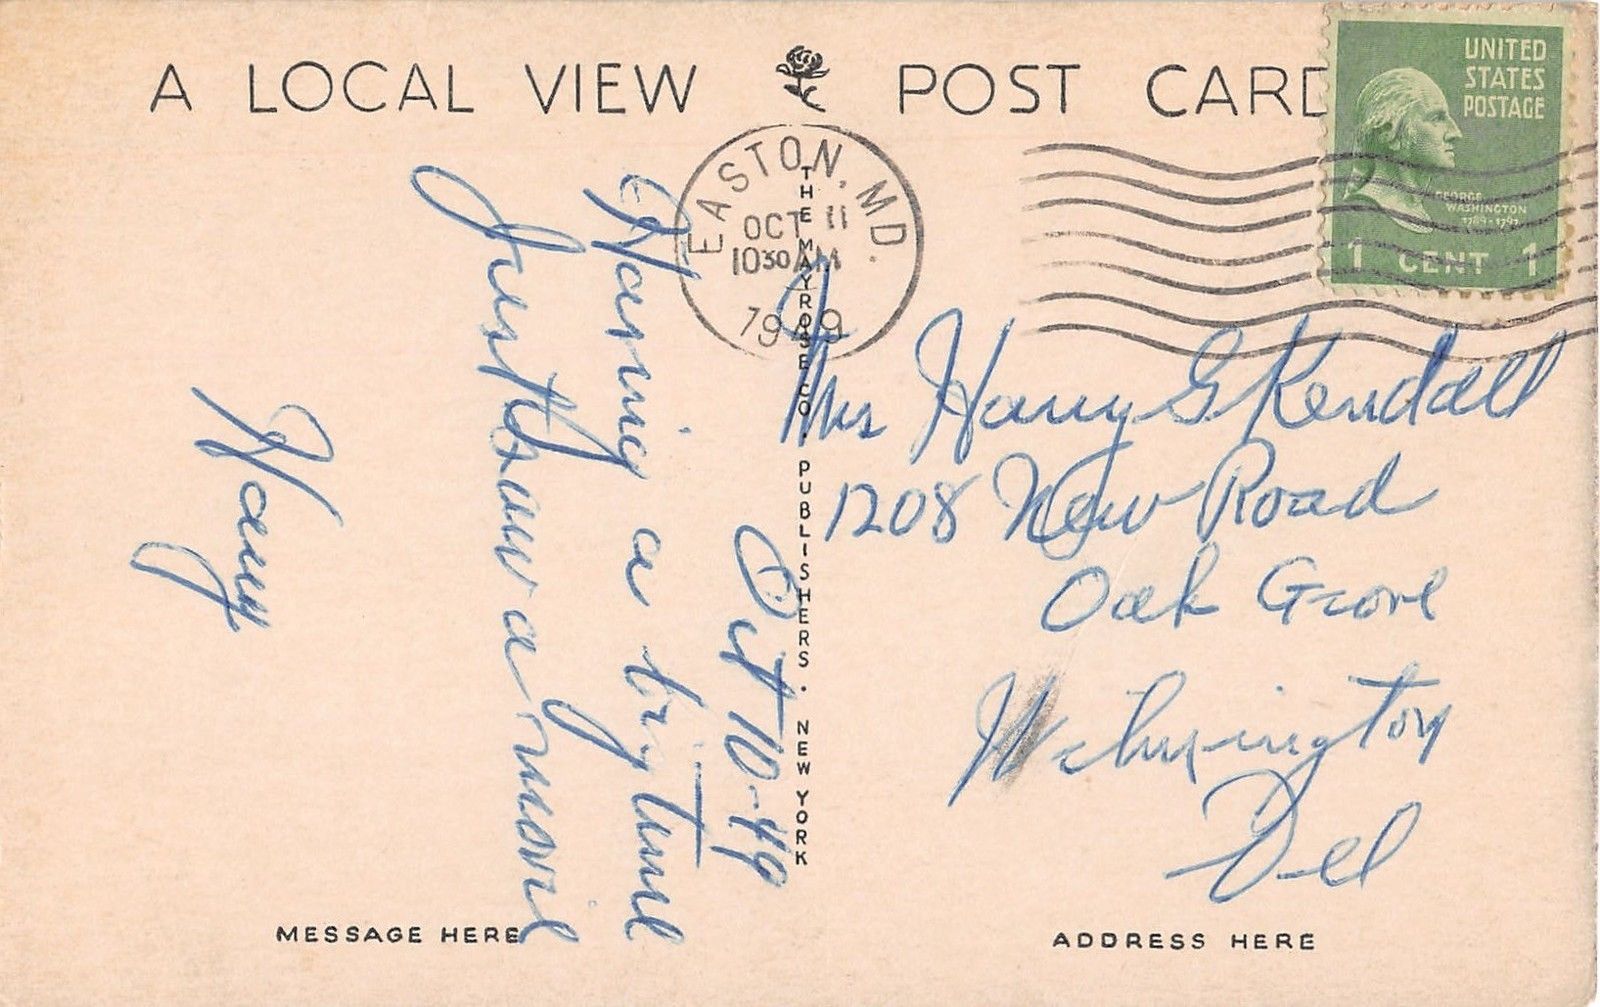 A LOCAL VIEW POST CARD
UNITED
STATES
POSTAGE
GEORGE
WASHINGTON
1789-1797
1 CENT 1
EASTON, MD.
OCT 11
10 30 AM
1949
THE MAYROSE CO. PUBLISHERS. NEW YORK
Oct 10-49
Having a big time
Just saw a movie
Harry
Mrs Harry G Kendall
1208 New Road
Oak Grove
Wilmington
Del
MESSAGE HERE
ADDRESS HERE